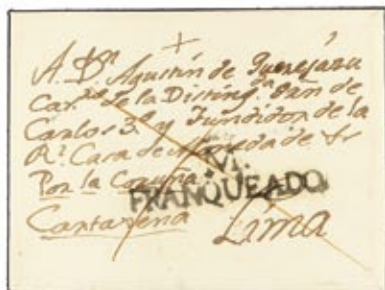 +
A D.ⁿ Agustin de Querejazu
Cav.ro de la Disting.da Orñ de
Carlos 3.º y Fundidor de la
R.l Casa de Moneda de &
Por la Coruña
VI.
FRANQUEADO
Cartagena Lima